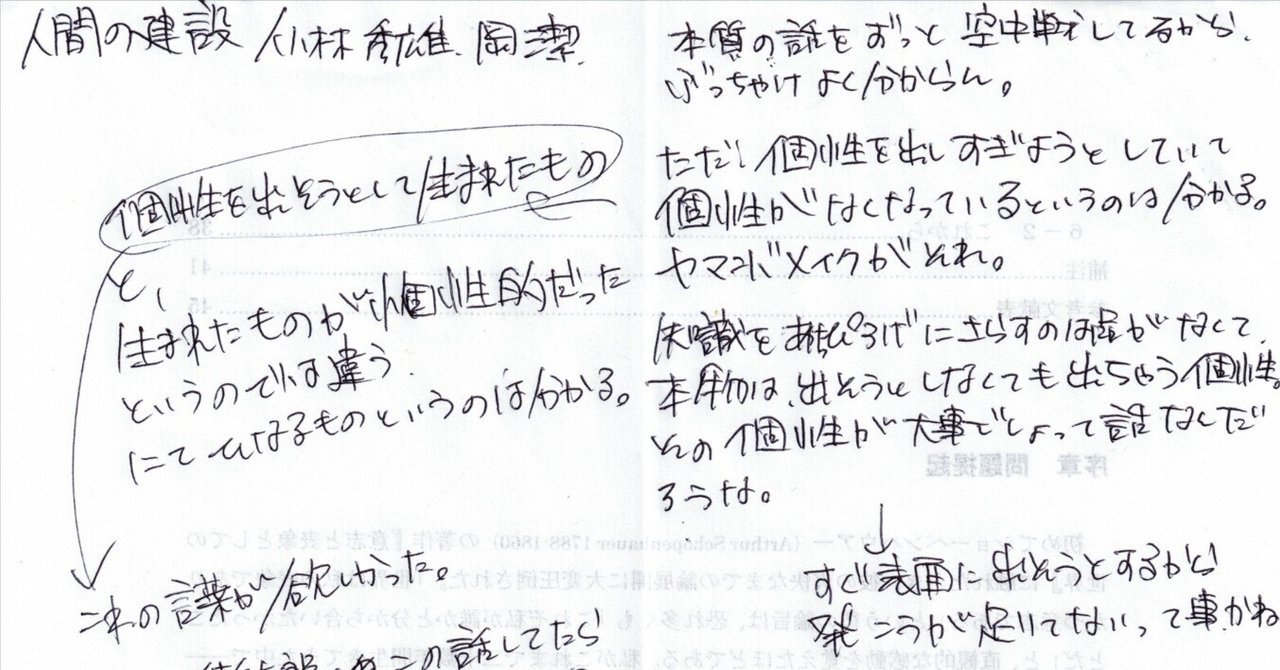 人間の建設 /小林秀雄.岡潔.
個性を出そうとして生まれたもの
と、
生まれたものが個性的だった
というのでは違う.
にてひなるものというのは分かる。
これの言葉が欲かった。
この話してたら
本質の話をずっと空中戦してるから、
ぶっちゃけよく分からん。
ただ、個性を出しすぎようとしていて
個性がなくなっているというのは分かる。
ヤマンバメイクがそれ。
知識をあけっぴろげにさらすのは違がなくて、
本物は、出そうとしなくても出ちゃう個性。
その個性が大事でしょって話なんだ
ろうな。
すぐ表面に出そうとするから
発こうが足りてないって事かね
6－2 これから 38
補注 41
参考文献表 45
序章 問題提起
初めてショーペンハウアー（Arthur Schopenhauer 1788-1860）の著作『意志と表象としての